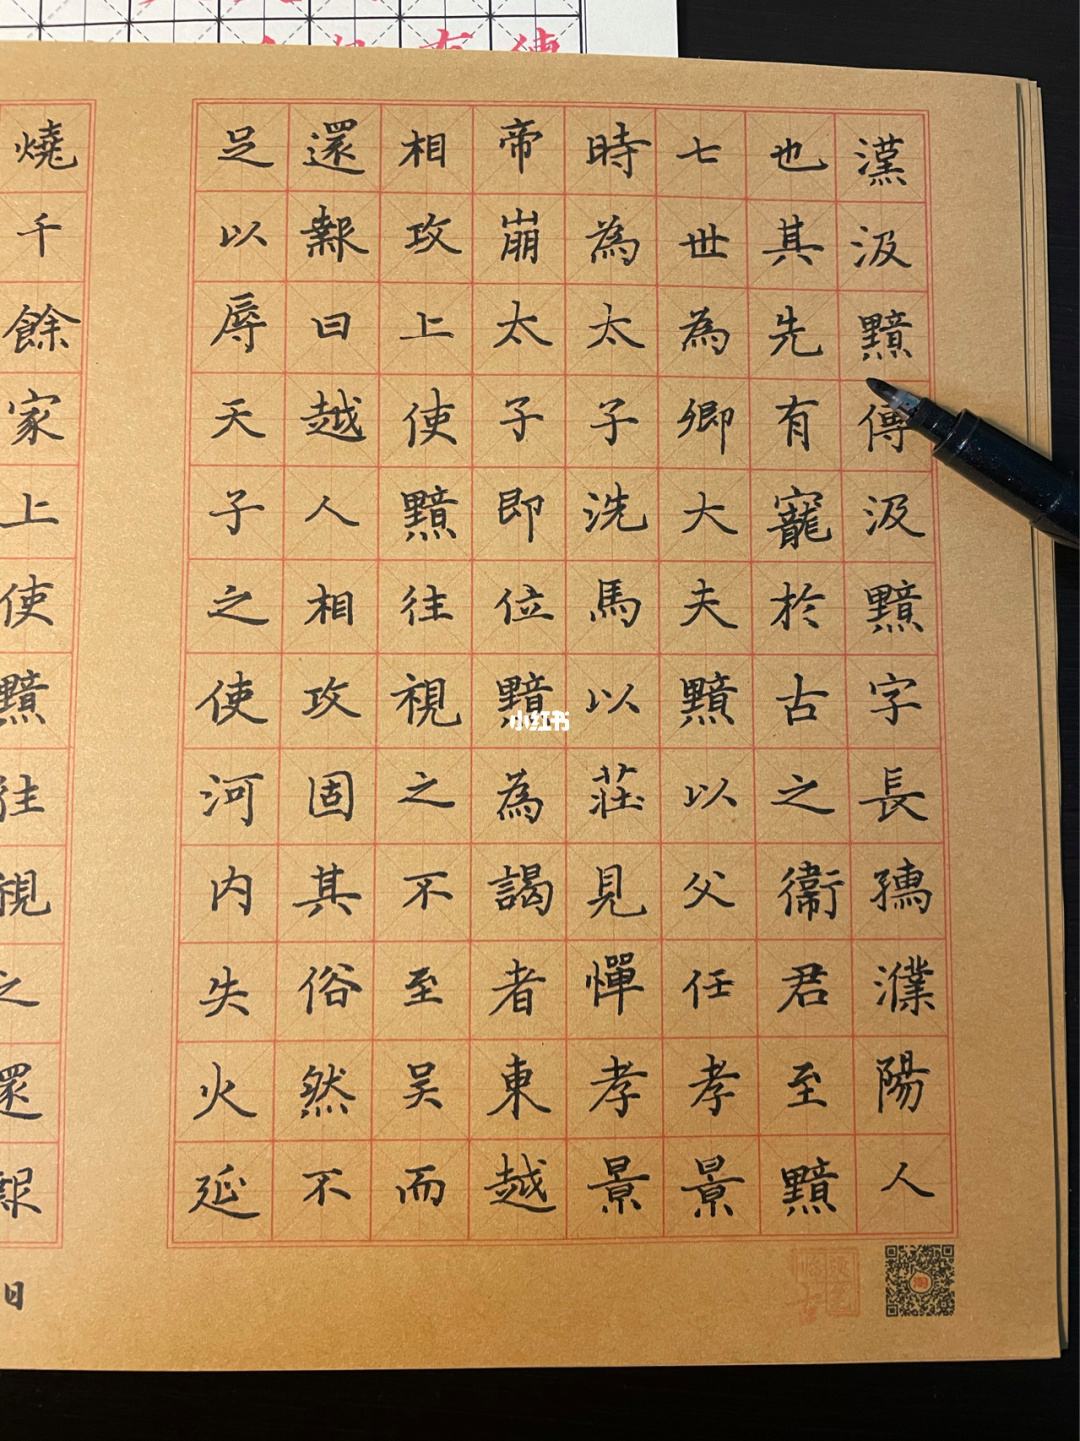 漢汲黯傳汲黯字長孺濮陽人
也其先有寵於古之衛君至黯
七世為卿大夫黯以父任孝景
時為太子洗馬以莊見憚孝景
帝崩太子即位黯為謁者東越
相攻上使黯往視之不至吴而
還報曰越人相攻固其俗然不
足以辱天子之使河内失火延
燒千餘家上使黯往視之還報
日
小红书